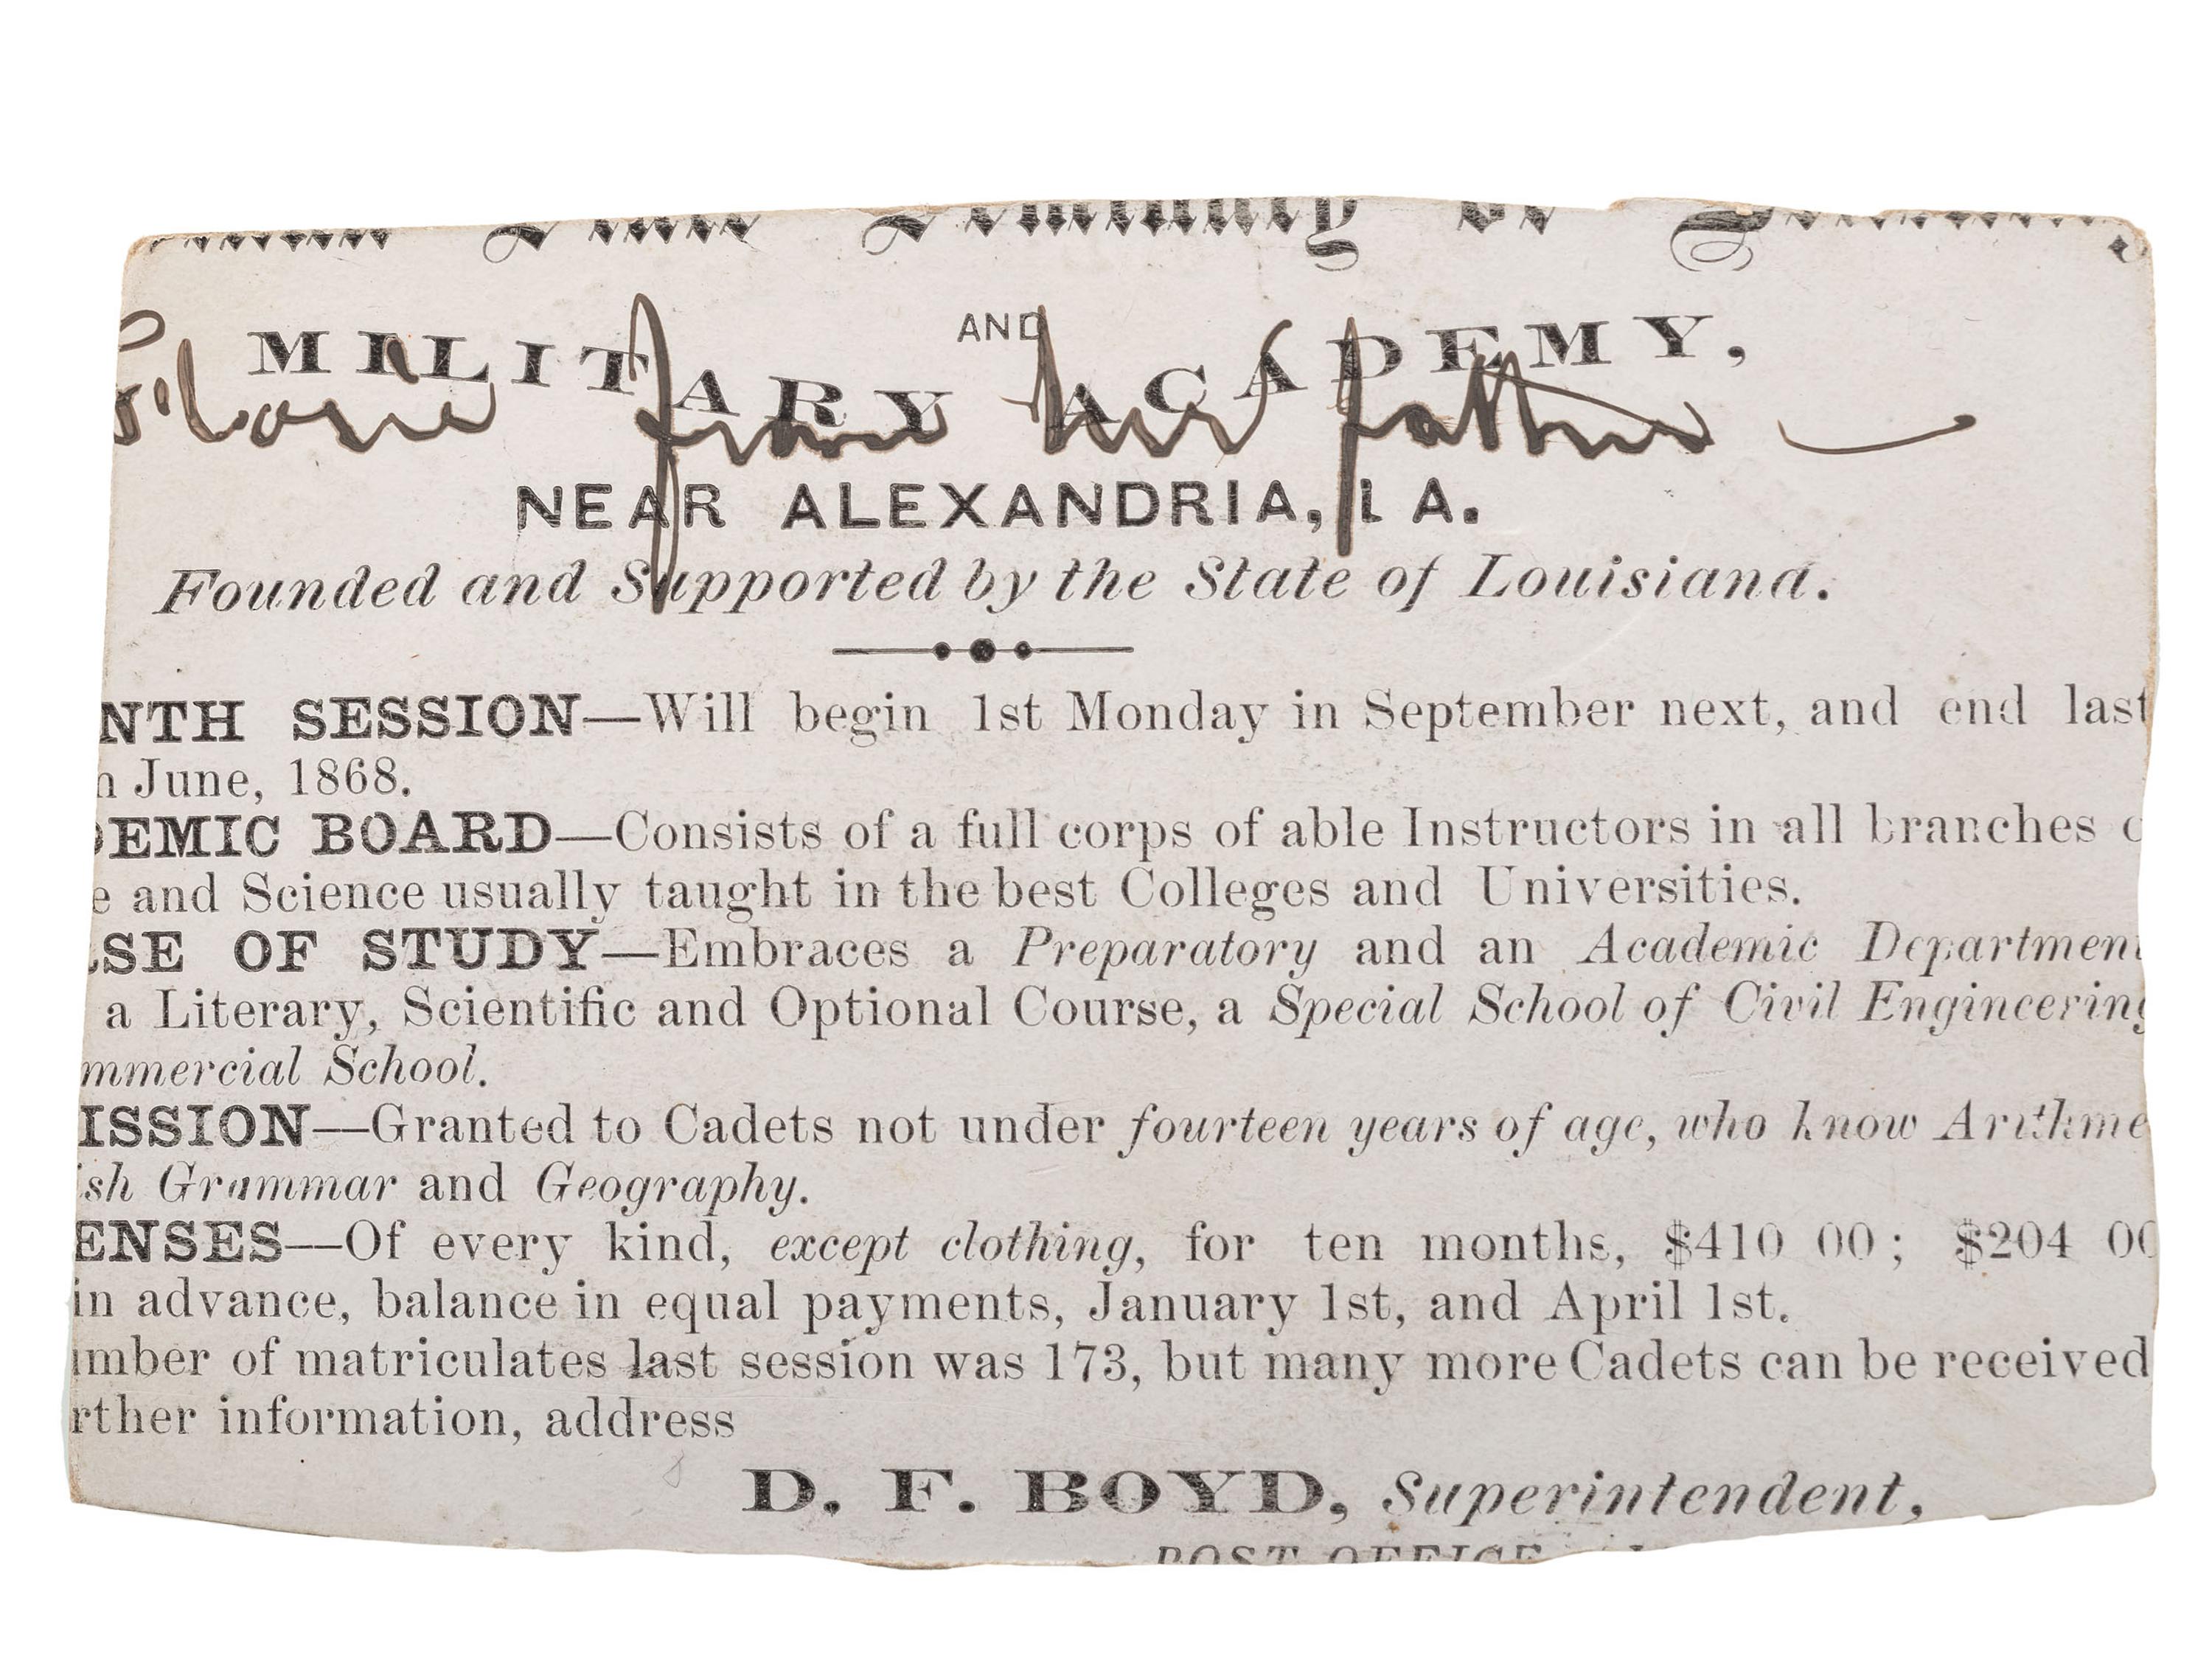 Seminary of
AND
MILITARY ACADEMY,
from her father
NEAR ALEXANDRIA, LA.
Founded and Supported by the State of Louisiana.
NTH SESSION—Will begin 1st Monday in September next, and end last
n June, 1868.
DEMIC BOARD—Consists of a full corps of able Instructors in all branches
e and Science usually taught in the best Colleges and Universities.
SE OF STUDY—Embraces a Preparatory and an Academic Department
a Literary, Scientific and Optional Course, a Special School of Civil Engineering
mmercial School.
ISSION—Granted to Cadets not under fourteen years of age, who know Arithme
sh Grammar and Geography.
ENSES—Of every kind, except clothing, for ten months, $410 00; $204 00
in advance, balance in equal payments, January 1st, and April 1st.
umber of matriculates last session was 173, but many more Cadets can be received
rther information, address
D. F. BOYD, Superintendent,
POST OFFICE